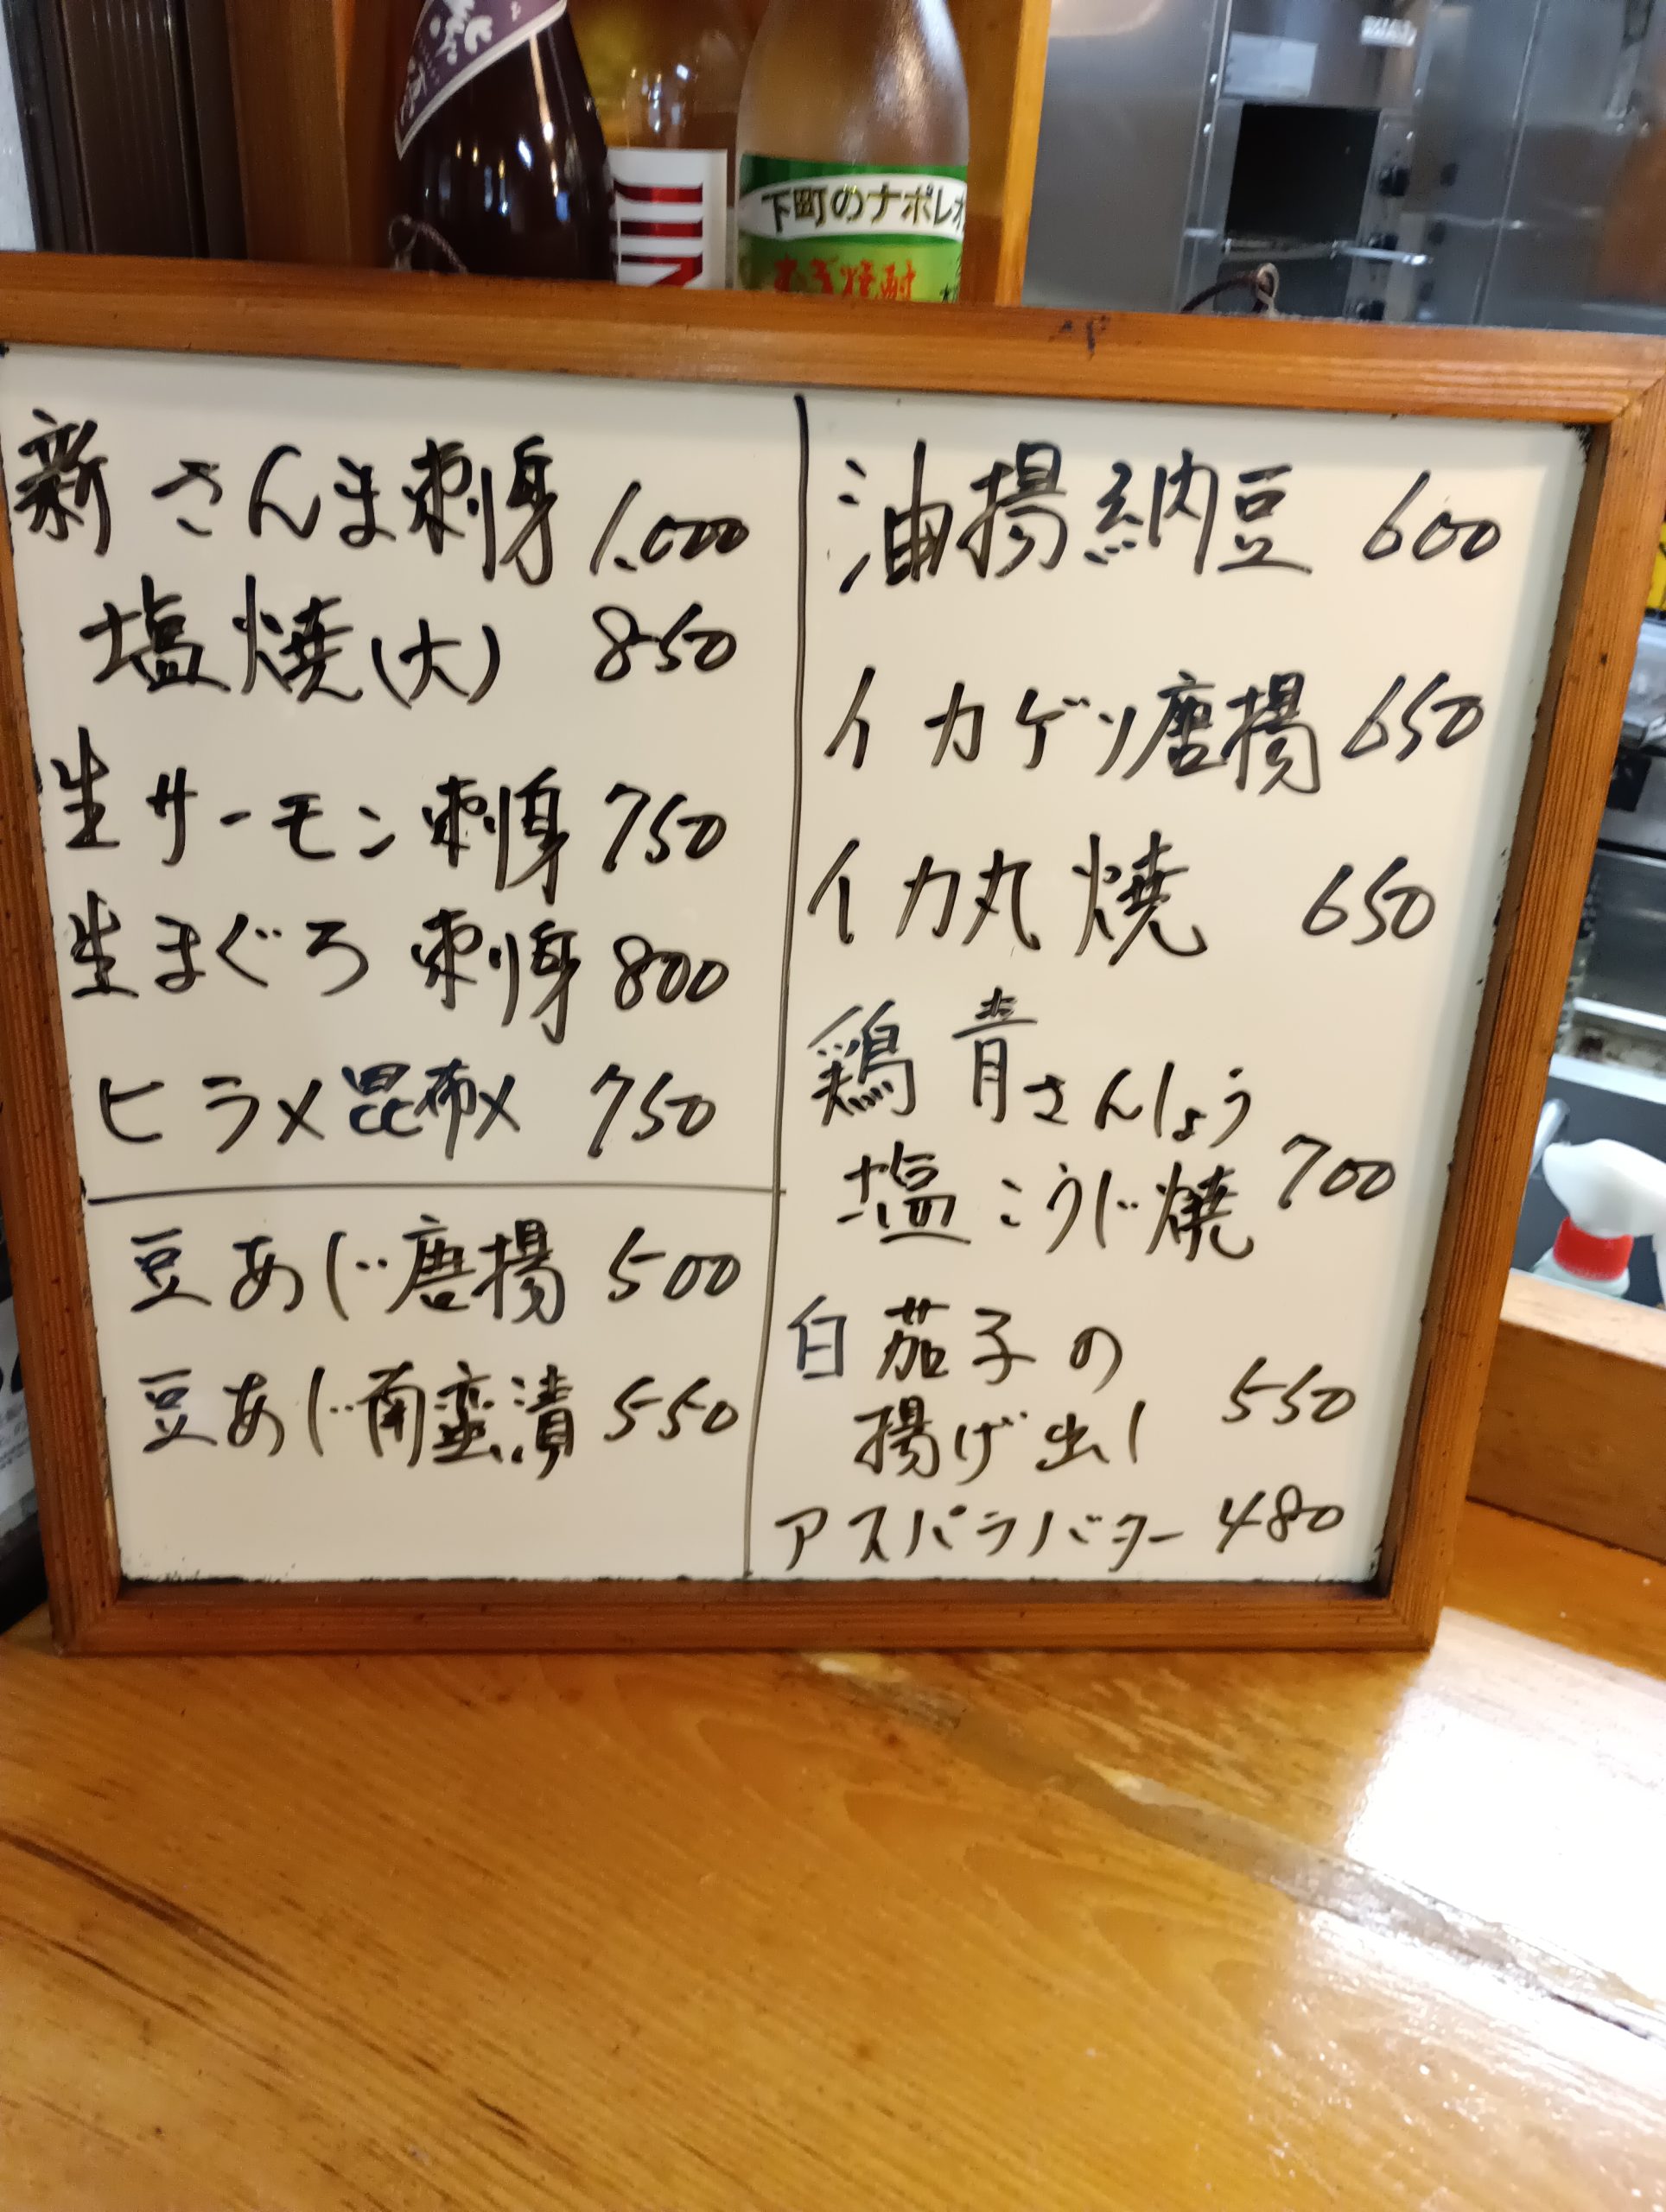 下町のナポレオ
むぎ焼酎
新さんま刺身 1,000
塩焼(大) 850
生サーモン刺身 750
生まぐろ刺身 800
ヒラメ昆布〆 750
豆あじ唐揚 500
豆あじ南蛮漬 550
油揚納豆 600
イカゲソ唐揚 650
イカ丸焼 650
鶏青さんしょう
塩こうじ焼 700
白茄子の
揚げ出し 550
アスパラバター 480